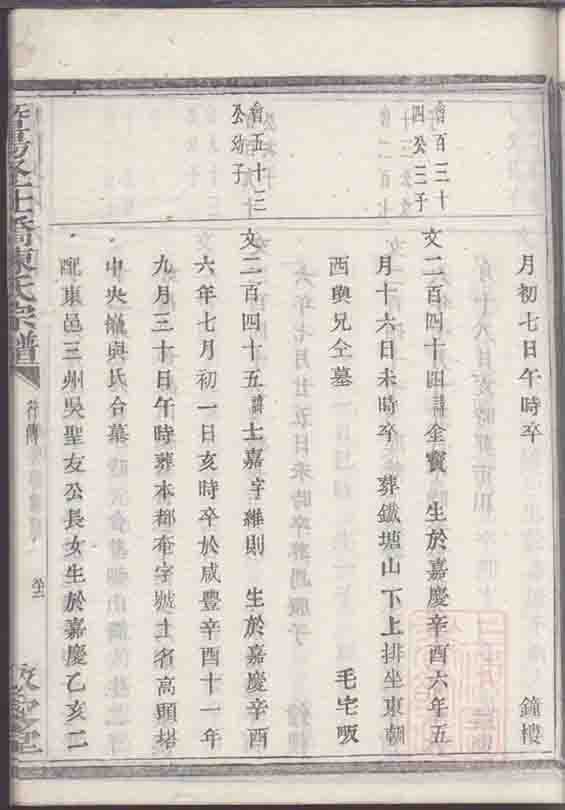 月初七日午時卒
鐘樓
會百三十
四公三子
文二百四十四諱金寳 生於嘉慶辛酉六年五
月十六日未時卒 葬鐵塘山下上排坐東朝
西與兄仝墓
毛宅畈
會五十三
公幼子
文二百四十五諱士嘉字維則 生於嘉慶辛酉
六年七月初一日亥時卒於咸豐辛酉十一年
九月三十日午時葬本都奄字號土名高頭塔
中央嶺與氏合墓
配東邑三州吳聖友公長女生於嘉慶乙亥二
陳氏宗譜
行傳